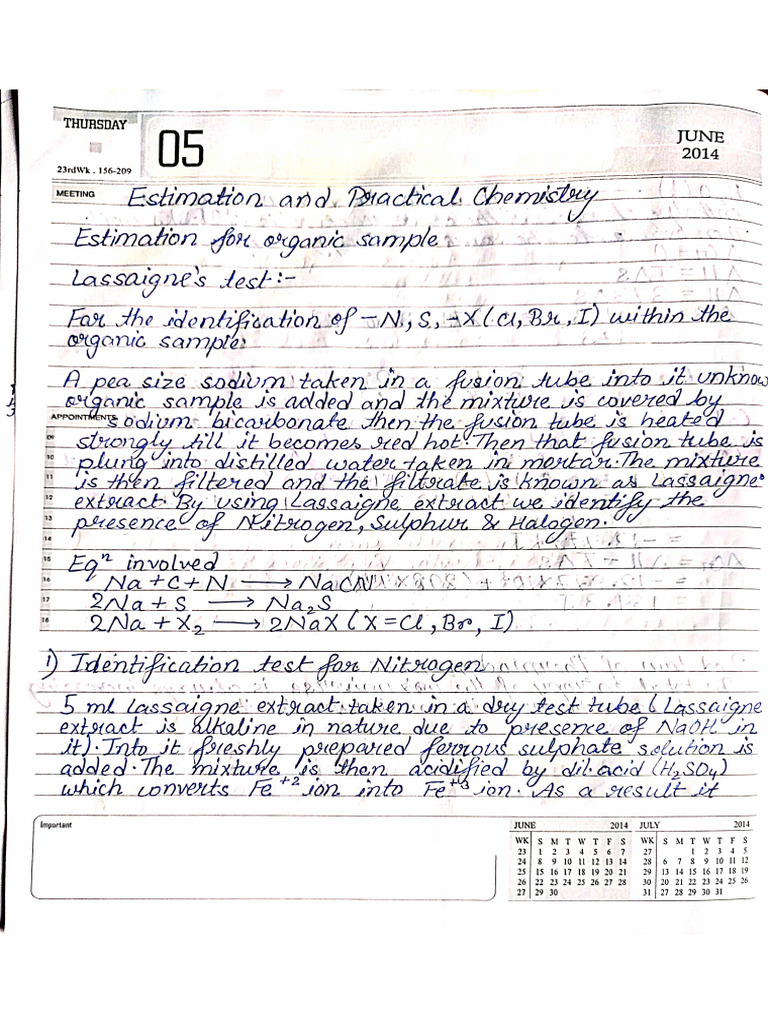 THURSDAY
05
JUNE
2014
23rdWk . 156-209
MEETING
Estimation and Practical Chemistry
Estimation for organic sample
Lassaigne's test:-
For the identification of -N, S, -X (Cl, Br, I) within the
organic sample.
A pea size sodium taken in a fusion tube into it unknow
organic sample is added and the mixture is covered by
APPOINTMENTS
sodium bicarbonate then the fusion tube is heated
09
strongly till it becomes red hot. Then that fusion tube is
10
plung into distilled water taken in mortar. The mixture
11
is then filtered and the filtrate is known as Lassaigne
12
extract. By using Lassaigne extract we identify the
13
presence of Nitrogen, Sulphur & Halogen.
14
15
Eqⁿ involved
16
Na + C + N ⟶ NaCN
17
2Na + S ⟶ Na₂S
18
2Na + X₂ ⟶ 2NaX (X = Cl, Br, I)
i) Identification test for Nitrogen
5 ml lassaigne extract taken in a dry test tube (Lassaigne
extract is alkaline in nature due to presence of NaOH in
it). Into it freshly prepared ferrous sulphate solution is
added. The mixture is then acidified by dil. acid (H₂SO₄)
which converts Fe⁺² ion into Fe⁺³ ion. As a result it
Important
JUNE 2014
WK S M T W T F S
23 1 2 3 4 5 6 7
24 8 9 10 11 12 13 14
25 15 16 17 18 19 20 21
26 22 23 24 25 26 27 28
27 29 30
JULY 2014
WK S M T W T F S
27 1 2 3 4 5
28 6 7 8 9 10 11 12
29 13 14 15 16 17 18 19
30 20 21 22 23 24 25 26
31 27 28 29 30 31